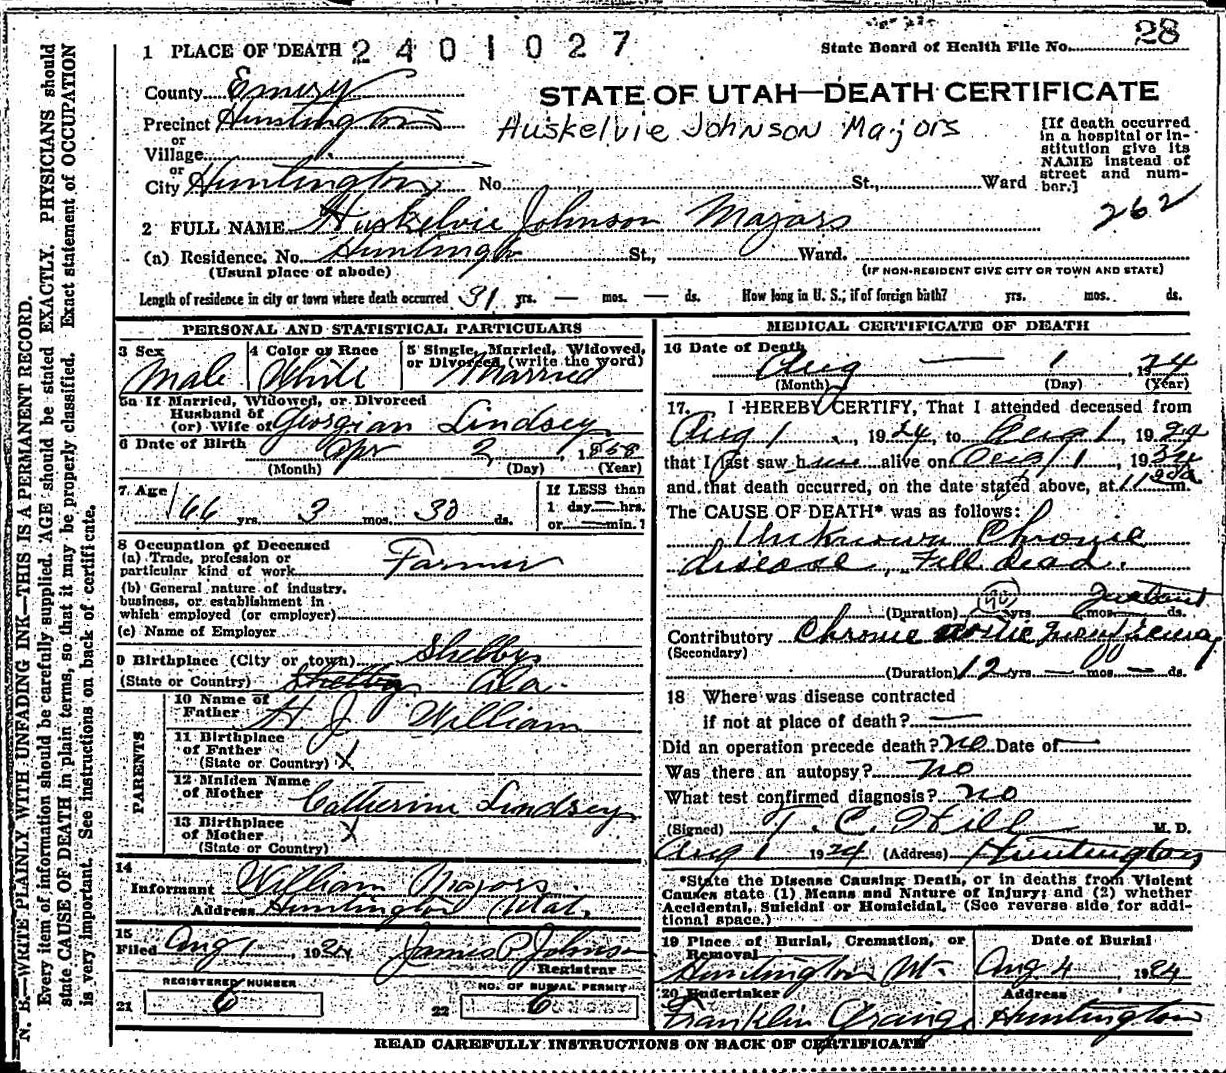 28
1 PLACE OF DEATH 2401027
State Board of Health File No.
County Emery
STATE OF UTAH—DEATH CERTIFICATE
Precinct Huntington
Huskelvie Johnson Majors
or
Village
or
City Huntington No. St., Ward
[If death occurred
in a hospital or in-
stitution give its
NAME instead of
street and num-
ber.]
262
2 FULL NAME Huskelvie Johnson Majors
(a) Residence. No. Huntington St., Ward.
(Usual place of abode)
(IF NON-RESIDENT GIVE CITY OR TOWN AND STATE)
Length of residence in city or town where death occurred 31 yrs. — mos. — ds. How long in U. S., if of foreign birth? yrs. mos. ds.
PERSONAL AND STATISTICAL PARTICULARS
3 Sex
Male
4 Color or Race
White
5 Single, Married, Widowed,
or Divorced (write the word)
Married
5a If Married, Widowed, or Divorced
Husband of
(or) Wife of Georgian Lindsey
6 Date of Birth Apr 2, 1858
(Month) (Day) (Year)
7. Age 66 yrs. 3 mos. 30 ds.
If LESS than
1 day — hrs.
or — min.?
8 Occupation of Deceased
(a) Trade, profession or
particular kind of work Farmer
(b) General nature of industry,
business, or establishment in
which employed (or employer)
(c) Name of Employer
9 Birthplace (City or town) Shelby
(State or Country) Shelby Ala.
PARENTS
10 Name of
Father H J William
11 Birthplace
of Father
(State or Country) X
12 Maiden Name
of Mother Catherine Lindsey
13 Birthplace
of Mother
(State or Country) X
14
Informant William Majors
Address Huntington Utah.
15
Filed Aug 1, 1924 James P Johnson
Registrar
REGISTERED NUMBER
21 6
NO. OF BURIAL PERMIT
22 6
MEDICAL CERTIFICATE OF DEATH
16 Date of Death
Aug — 1 1924
(Month) (Day) (Year)
17. I HEREBY CERTIFY, That I attended deceased from
Aug 1, 1924, to Aug 1, 1924
that I last saw him alive on Aug 1, 1924
and that death occurred, on the date stated above, at 11 m.
The CAUSE OF DEATH* was as follows:
Unknown Chronic
disease, Fell dead.
(Duration) 90 yrs. Instant mos. ds.
Contributory Chronic aortic insuficiency
(Secondary)
(Duration) 12 yrs. — mos. — ds.
18 Where was disease contracted
if not at place of death? —
Did an operation precede death? no Date of —
Was there an autopsy? no
What test confirmed diagnosis? no
(Signed) T. C. Hill M. D.
Aug 1 1924 (Address) Huntington
*State the Disease Causing Death, or in deaths from Violent
Causes state (1) Means and Nature of Injury; and (2) whether
Accidental, Suicidal or Homicidal. (See reverse side for addi-
tional space.)
19 Place of Burial, Cremation, or
Removal
Huntington Ut.
Date of Burial
Aug 4 1924
20 Undertaker
Franklin Grange
Address
Huntington
READ CAREFULLY INSTRUCTIONS ON BACK OF CERTIFICATE
N. B.—WRITE PLAINLY, WITH UNFADING INK—THIS IS A PERMANENT RECORD.
Every item of information should be carefully supplied. AGE should be stated EXACTLY. PHYSICIANS should
state CAUSE OF DEATH in plain terms, so that it may be properly classified. Exact statement of OCCUPATION
is very important. See instructions on back of certificate.